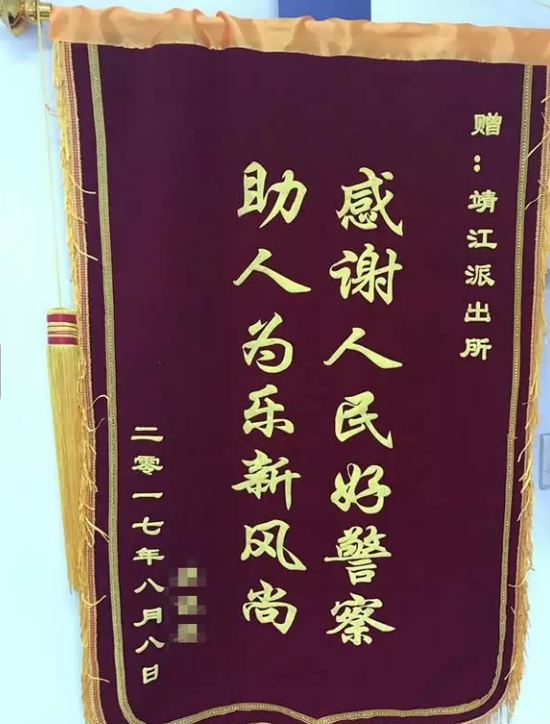 赠：靖江派出所
感谢人民好警察
助人为乐新风尚
二零一七年八月八日